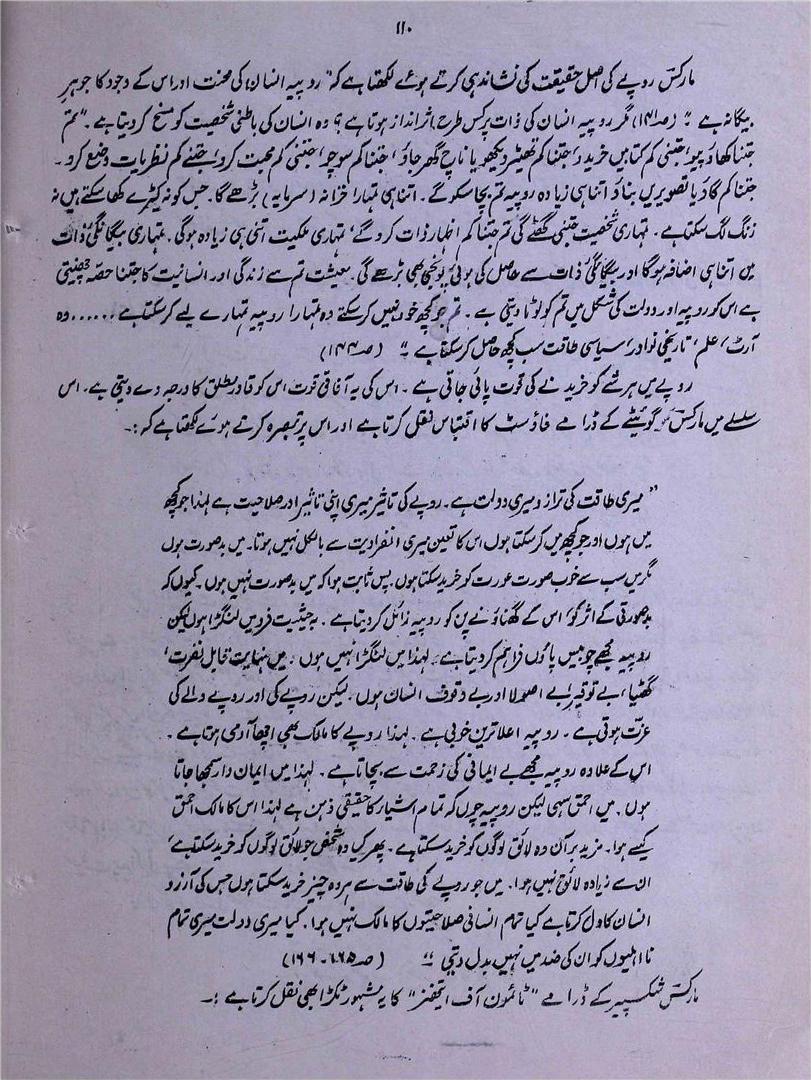 ۱۱۰
مارکس روپے کی اصل حقیقت کی نشاندہی کرتے ہوئے لکھتا ہے کہ "روپیہ انسان کی محنت اور اس کے وجود کا جوہرِ
بیگانہ ہے" (صہ۱۴۱) مگر روپیہ انسان کی ذات پر کس طرح اثر انداز ہوتا ہے؟ وہ انسان کی باطنی شخصیت کو مسخ کر دیتا ہے۔ "تم
جتنا کھاؤ پیو، جتنی کم کتابیں خریدو، جتنا کم تھیٹر دیکھو یا ناچ گھر جاؤ، جتنا کم سوچو، جتنی کم محبت کرو، جتنے کم نظریات وضع کرو۔
جتنا کم گاؤ یا تصویریں بناؤ اتنا ہی زیادہ روپیہ تم بچا سکو گے۔ اتنا ہی تمہارا خزانہ (سرمایہ) بڑھے گا۔ جس کو نہ کیڑے کھا سکتے ہیں نہ
زنگ لگ سکتا ہے۔ تمہاری شخصیت جتنی گھٹے گی تم جتنا کم اظہارِ ذات کرو گے، تمہاری ملکیت اتنی ہی زیادہ ہوگی۔ تمہاری بیگانگیٔ ذات
میں اتنا ہی اضافہ ہوگا اور بیگانگیٔ ذات سے حاصل کی ہوئی پونجی بھی بڑھے گی۔ معیشت تم سے زندگی اور انسانیت کا جتنا حصہ چھینتی
ہے اس کو روپیہ اور دولت کی شکل میں تم کو لوٹا دیتی ہے۔ تم جو کچھ خود نہیں کر سکتے وہ تمہارا روپیہ تمہارے لیے کر سکتا ہے ...... وہ
آرٹ، علم، تاریخی نوادر، سیاسی طاقت سب کچھ حاصل کر سکتا ہے" (صہ۱۴۴)
روپے میں ہر شے کو خریدنے کی قوت پائی جاتی ہے۔ اس کی یہ آفاقی قوت اس کو قادرِ مطلق کا درجہ دے دیتی ہے۔ اس
سلسلے میں مارکس گوئٹے کے ڈرامے فاؤسٹ کا اقتباس نقل کرتا ہے اور اس پر تبصرہ کرتے ہوئے لکھتا ہے کہ :۔
"میری طاقت کی ترازو میری دولت ہے۔ روپے کی تاثیر میری اپنی تاثیر اور صلاحیت ہے لہٰذا جو کچھ
میں ہوں اور جو کچھ میں کر سکتا ہوں اس کا تعین میری انفرادیت سے بالکل نہیں ہوتا۔ میں بدصورت ہوں
مگر میں سب سے خوب صورت عورت کو خرید سکتا ہوں پس ثابت ہوا کہ میں بدصورت نہیں ہوں۔ کیوں کہ
بدصورتی کے اثر کو، اس کے گھناؤنے پن کو روپیہ زائل کر دیتا ہے۔ بہ حیثیت فرد میں لنگڑا ہوں لیکن
روپیہ مجھے چوبیس پاؤں فراہم کر دیتا ہے۔ لہٰذا میں لنگڑا نہیں ہوں۔ میں نہایت قابلِ نفرت،
گھٹیا، بے توقیر، بے اصولا اور بے وقوف انسان ہوں۔ لیکن روپے کی اور روپے والے کی
عزّت ہوتی ہے۔ روپیہ اعلا ترین خوبی ہے۔ لہٰذا روپے کا مالک بھی اچھا آدمی ہوتا ہے۔
اس کے علاوہ روپیہ مجھے بے ایمانی کی زحمت سے بچاتا ہے۔ لہٰذا میں ایمان دار سمجھا جاتا
ہوں۔ میں احمق سہی لیکن روپیہ چوں کہ تمام اشیار کا حقیقی ذہن ہے لہٰذا اس کا مالک احمق
کیسے ہوا۔ مزید برآن وہ لائق لوگوں کو خرید سکتا ہے۔ پھر کیا وہ شخص جو لائق لوگوں کو خرید سکتا ہے،
ان سے زیادہ لائق نہیں ہوا۔ میں جو روپے کی طاقت سے ہر وہ چیز خرید سکتا ہوں جس کی آرزو
انسان کا دل کرتا ہے کیا تمام انسانی صلاحیتوں کا مالک نہیں ہوا۔ کیا میری دولت میری تمام
نا اہلیوں کو ان کی ضد میں نہیں بدل دیتی" (صہ ۱۶۵۔۱۶۶)
مارکس شکسپیر کے ڈرامے "ٹائمون آف ایتھنز" کا یہ مشہور ٹکڑا بھی نقل کرتا ہے :۔